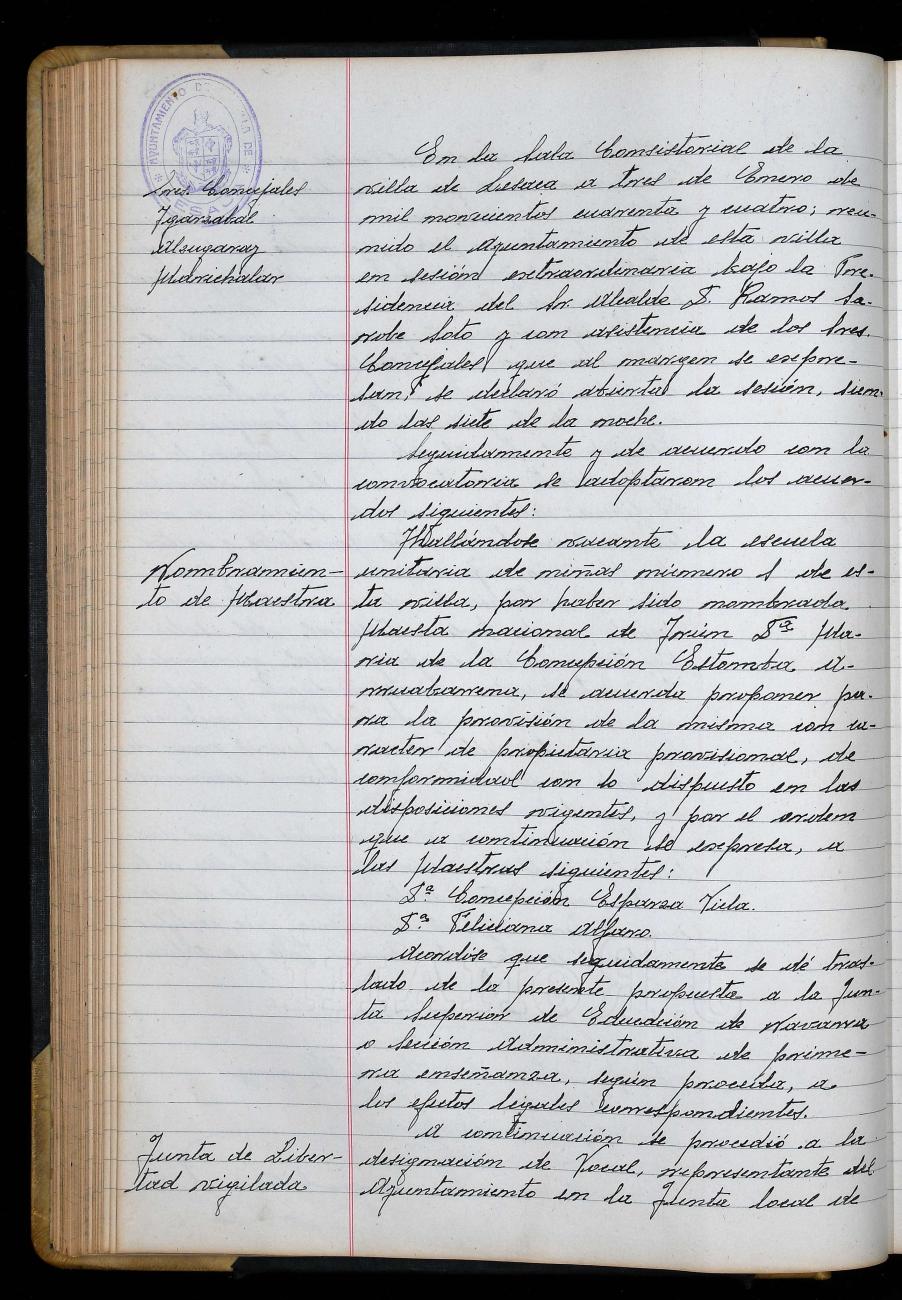 AYUNTAMIENTO DE LA VILLA DE
LESACA
Sres Concejales
Igarzabal
Alzugaray
Marichalar
En la Sala Consistorial de la
villa de Lesaca a tres de Enero de
mil novecientos cuarenta y cuatro; reu-
nido el Ayuntamiento de esta villa
en sesión extraordinaria bajo la Pre-
sidencia del Sr. Alcalde D. Ramos Sa-
robe Soto y con asistencia de los Sres.
Concejales que al margen se expre-
san, se declaró abierta la sesión, sien-
do las siete de la noche.
Seguidamente y de acuerdo con la
convocatoria se adoptaron los acuer-
dos siguientes:
Nombramien-
to de Maestra
Hallándose vacante la escuela
unitaria de niñas número 1 de es-
ta villa, por haber sido nombrada
Maesta nacional de Irún Dª Ma-
ria de la Concepción Estomba A-
rruabarrena, se acuerda proponer pa-
ra la provisión de la misma con ca-
racter de propietaria provisional, de
conformidad con lo dispuesto en las
disposiciones vigentes, y por el orden
que a continuación se expresa, a
las Maestras siguientes:
Dª Concepción Esparza Viela.
Dª Feliciana Alfaro.
Acordóse que seguidamente se dé tras-
lado de la presente propuesta a la Jun-
ta Superior de Educación de Navarra
o Sección Administrativa de prime-
ra enseñanza, según proceda, a
los efectos legales correspondientes.
Junta de Liber-
tad vigilada
A continuación se procedió a la
designación de Vocal, representante del
Ayuntamiento en la Junta local de